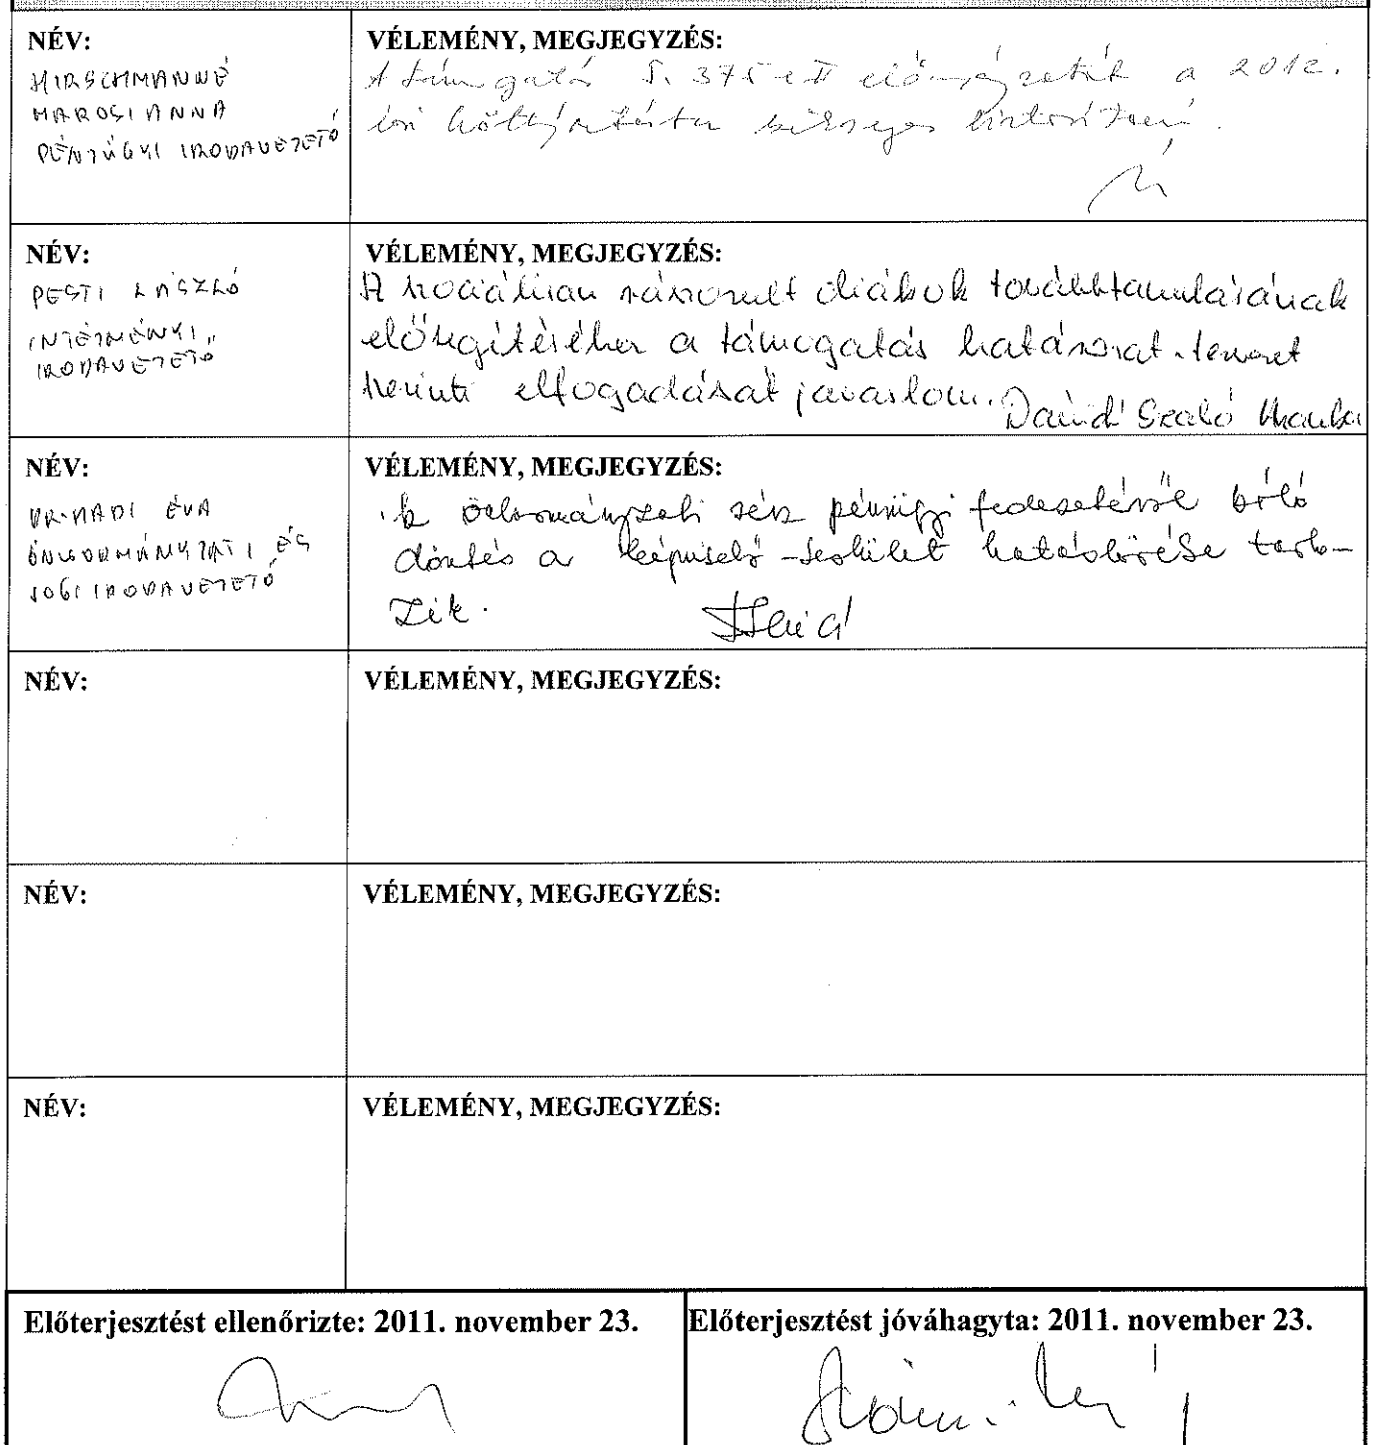 NÉV:
HIRSCHMANNÉ
MAROSI ANNA
PÉNZÜGYI IRODAVEZETŐ
VÉLEMÉNY, MEGJEGYZÉS:
A támogatás 5. 375 eFt előirányzatát a 2012.
évi költségvetésben szükséges biztosítani.
NÉV:
PESTI LÁSZLÓ
INTÉZMÉNYI
IRODAVEZETŐ
VÉLEMÉNY, MEGJEGYZÉS:
A szociálisan rászorult diákok továbbtanulásának
elősegítéséhez a támogatás határozat-tervezet
szerinti elfogadását javaslom. Dávid Szabó
NÉV:
ÉVA
ÖNKORMÁNYZATI ÉS
JOGI IRODAVEZETŐ
VÉLEMÉNY, MEGJEGYZÉS:
Az önkormányzati rész pénzügyi fedezetéről szóló
döntés a képviselő-testület hatáskörébe tarto-
zik.
NÉV:
VÉLEMÉNY, MEGJEGYZÉS:
NÉV:
VÉLEMÉNY, MEGJEGYZÉS:
NÉV:
VÉLEMÉNY, MEGJEGYZÉS:
Előterjesztést ellenőrizte: 2011. november 23.
Előterjesztést jóváhagyta: 2011. november 23.